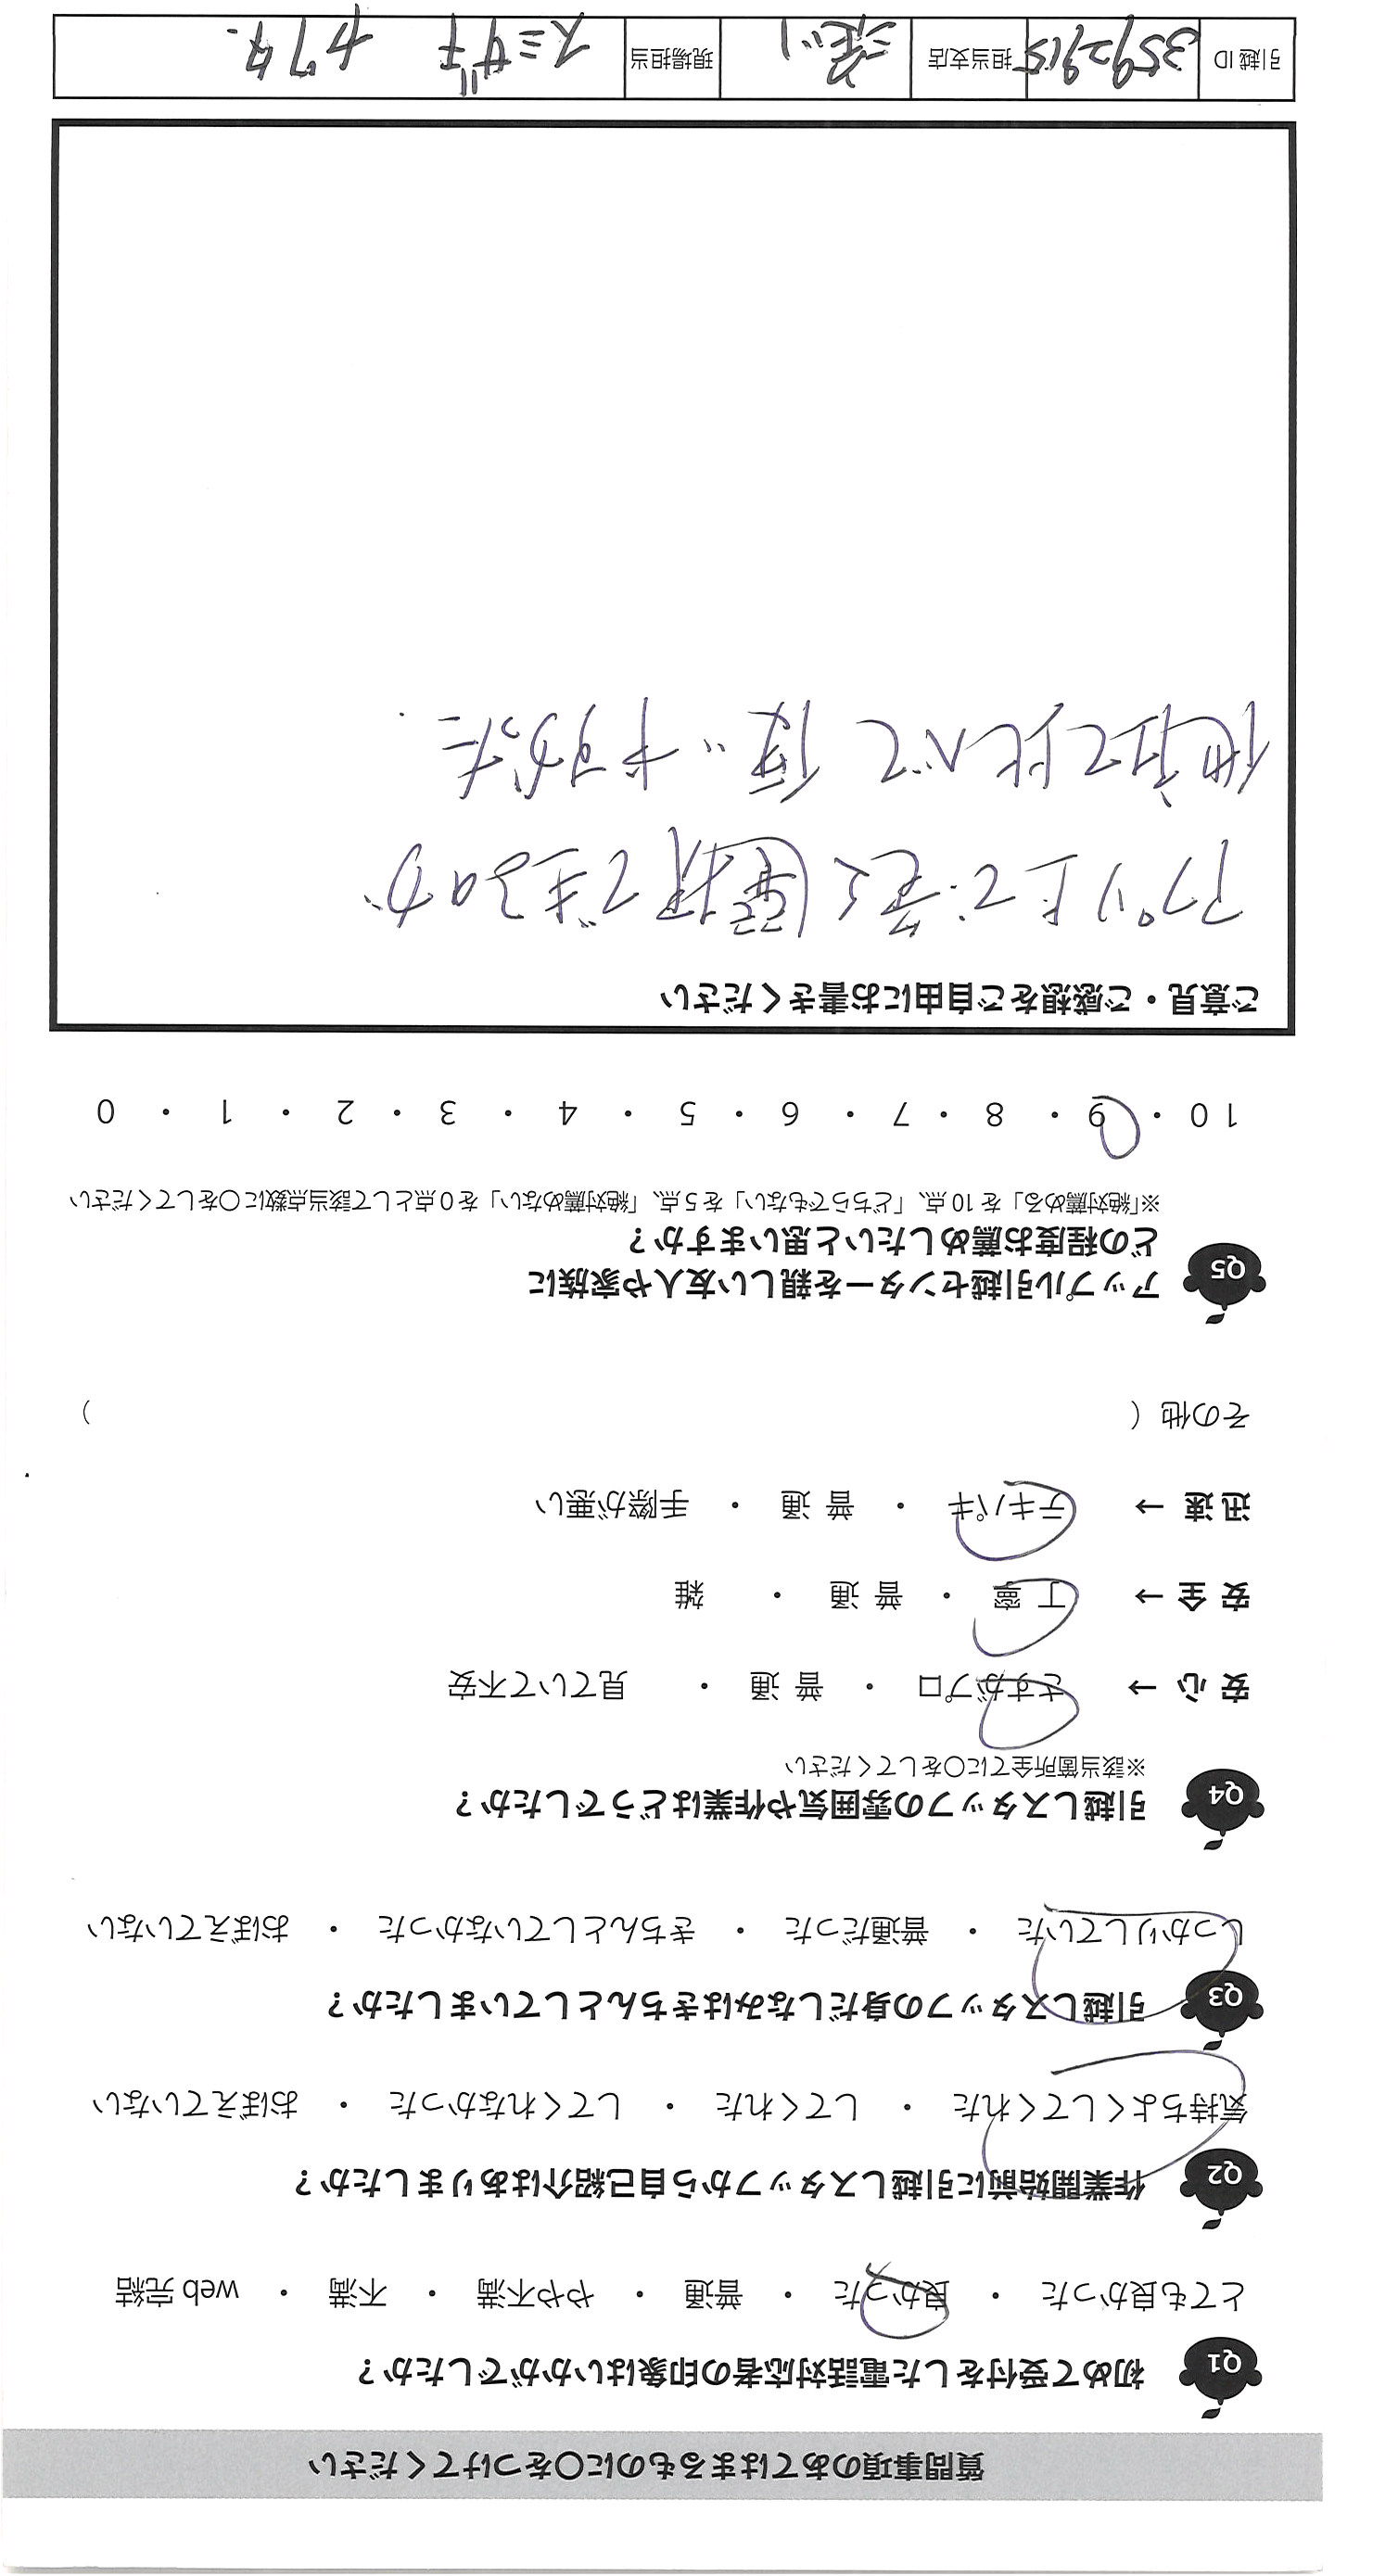 質問事項のあてはまるものに〇をつけてください
Q1 初めて受付をした電話対応者の印象はいかがでしたか？
とても良かった ・ 良かった ・ 普通 ・ やや不満 ・ 不満 ・ web 完結
Q2 作業開始前に引越しスタッフから自己紹介はありましたか？
気持ちよくしてくれた ・ してくれた ・ してくれなかった ・ おぼえていない
Q3 引越しスタッフの身だしなみはきちんとしていましたか？
しっかりしていた ・ 普通だった ・ きちんとしていなかった ・ おぼえていない
Q4 引越しスタッフの雰囲気や作業はどうでしたか？
※該当箇所全てに〇をしてください
安心→ さすがプロ ・ 普通 ・ 見ていて不安
安全→ 丁寧 ・ 普通 ・ 雑
迅速→ テキパキ ・ 普通 ・ 手際が悪い
その他（ ）
Q5 アップル引越センターを親しい友人や家族に
どの程度お薦めしたいと思いますか？
※「絶対薦める」を10点、「どちらでもない」を5点、「絶対薦めない」を0点として該当点数に〇をしてください
10 ・ 9 ・ 8 ・ 7 ・ 6 ・ 5 ・ 4 ・ 3 ・ 2 ・ 1 ・ 0
ご意見・ご感想をご自由にお書きください
アプリ上で、荷を選択できるのが
他社と比べて
引越ID 3592915 担当支店 現場担当 スミザキ